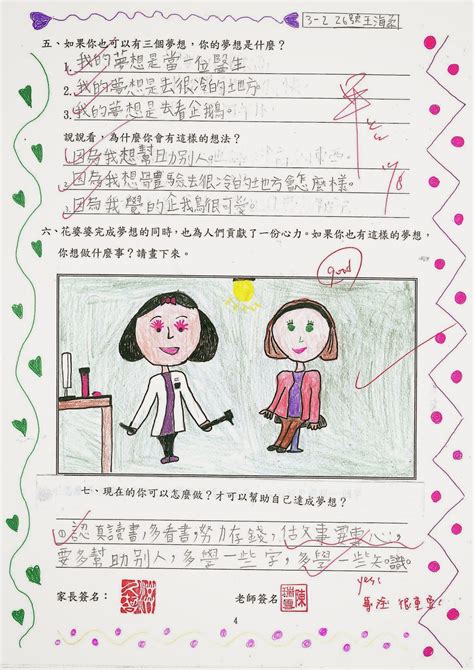 3-2 26號王海
五、如果你也可以有三個夢想，你的夢想是什麼？
1.我的夢想是當一位醫生
2.我的夢想是去很冷的地方
3.我的夢想是去看企鵝。
說說看，為什麼你會有這樣的想法？
1.因為我想幫助別人。
2.因為我想體驗去很冷的地方會怎麼樣。
3.因為我覺的企鵝很可愛。
六、花婆婆完成夢想的同時，也為人們貢獻了一份心力。如果你也有這樣的夢想，
你想做什麼事？請畫下來。
good
七、現在的你可以怎麼做？才可以幫助自己達成夢想？
認真讀書，多看書，努力存錢，做事要
要多幫助別人，多學一些字，多學一些知識。
yes!
家長簽名：
老師簽名：
陳
4